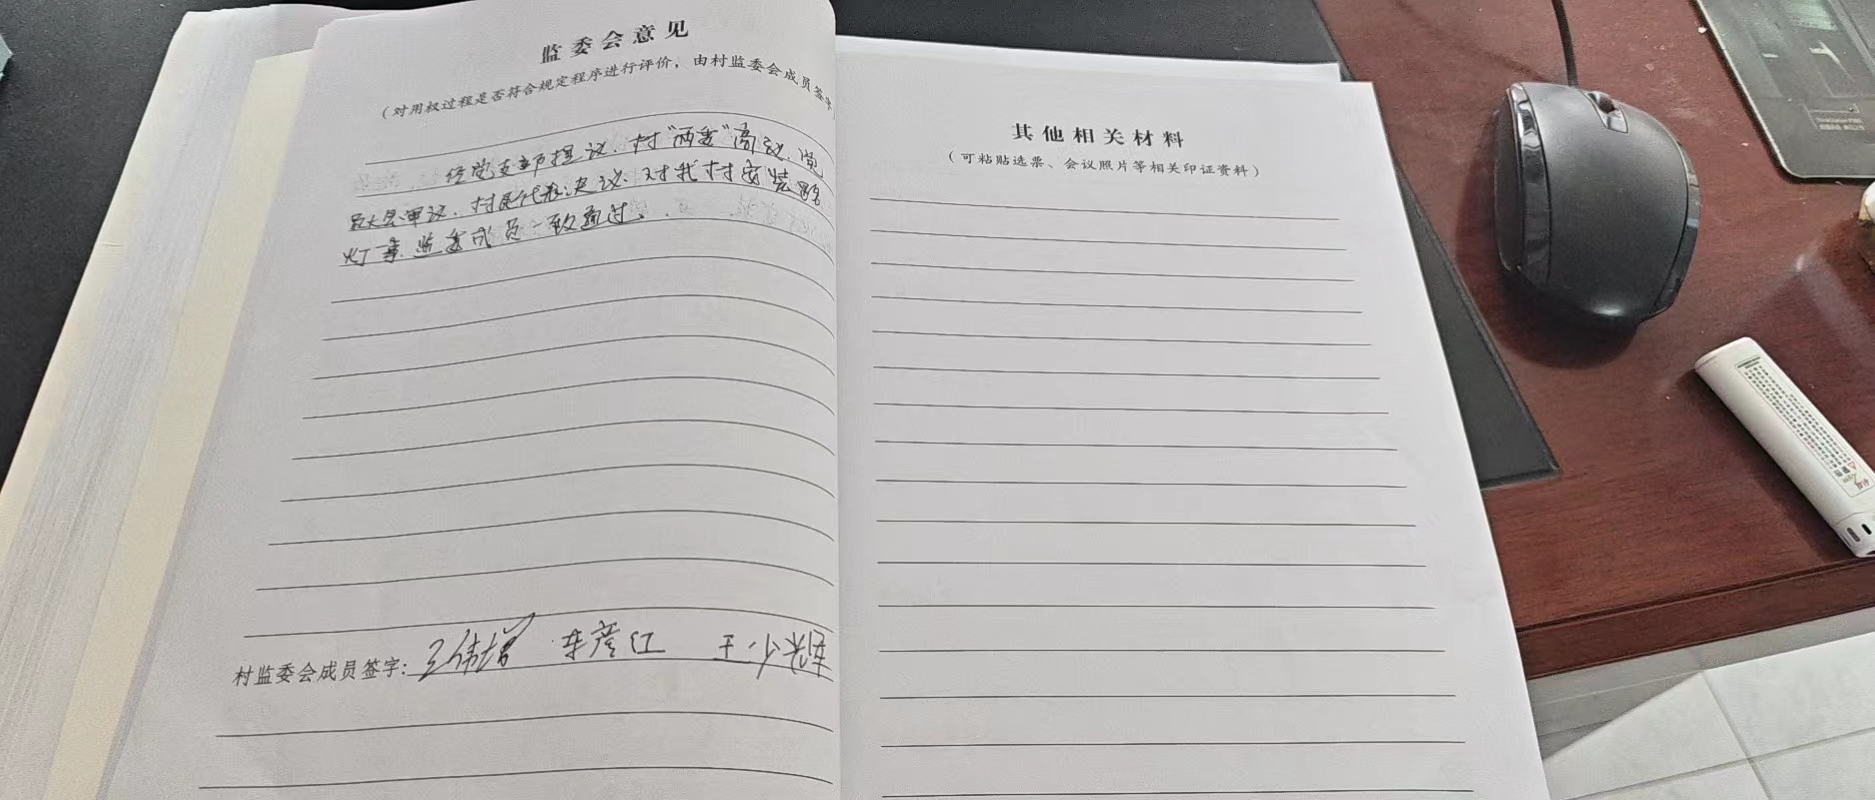 监委会意见
（对用权过程是否符合规定程序进行评价，由村监委会成员签字
经党支部提议、村“两委”商议、党
员大会审议、村民代表决议、对我村安装路
灯事监委成员一致通过。
村监委会成员签字：王伟增 车彦红 王少辉
其他相关材料
（可粘贴选票、会议照片等相关印证资料）